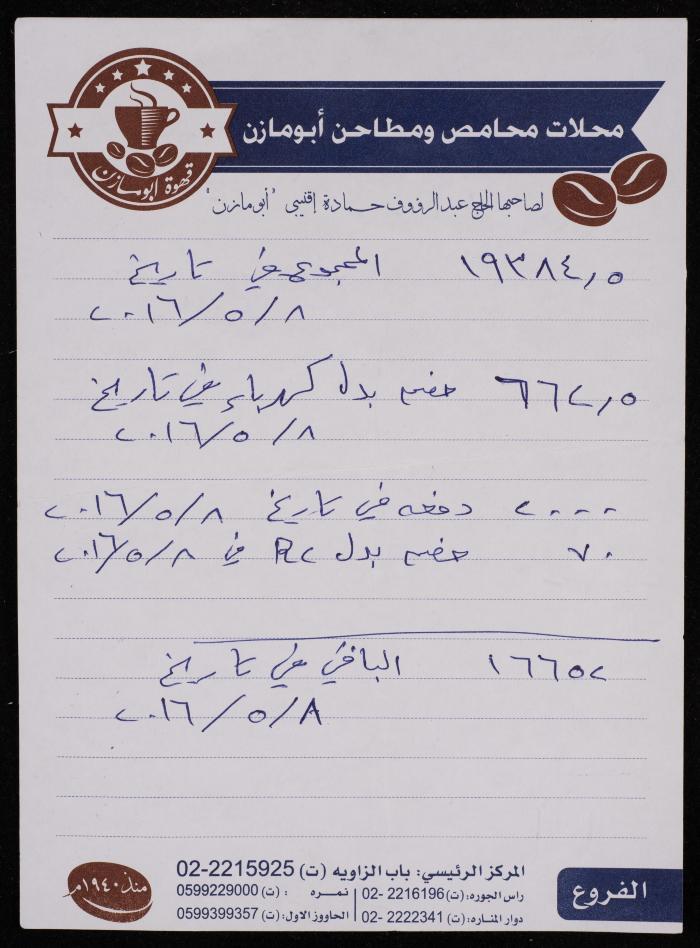 محلات محامص ومطاحن أبومازن
قهوة ابومازن
لصاحبها الحاج عبدالرؤوف حمادة إقنيبي "أبومازن"
١٩٣٨٤,٥ المجموع في تاريخ
٢٠١٦/٥/٨
٦٦٢,٥ خصم بدل كهرباء في تاريخ
٢٠١٦/٥/٨
٢٠٠٠ دفعه في تاريخ ٢٠١٦/٥/٨
٧٠ خصم بدل R٢ في ٢٠١٦/٥/٨
١٦٦٥٢ الباقي في تاريخ
٢٠١٦/٥/٨
الفروع
المركز الرئيسي: باب الزاويه (ت) 02-2215925
راس الجوره: (ت) 02- 2216196 | نمره : (ت) 0599229000
دوار المناره: (ت) 02- 2222341 | الحاووز الاول: (ت) 0599399357
منذ ١٩٤٠م